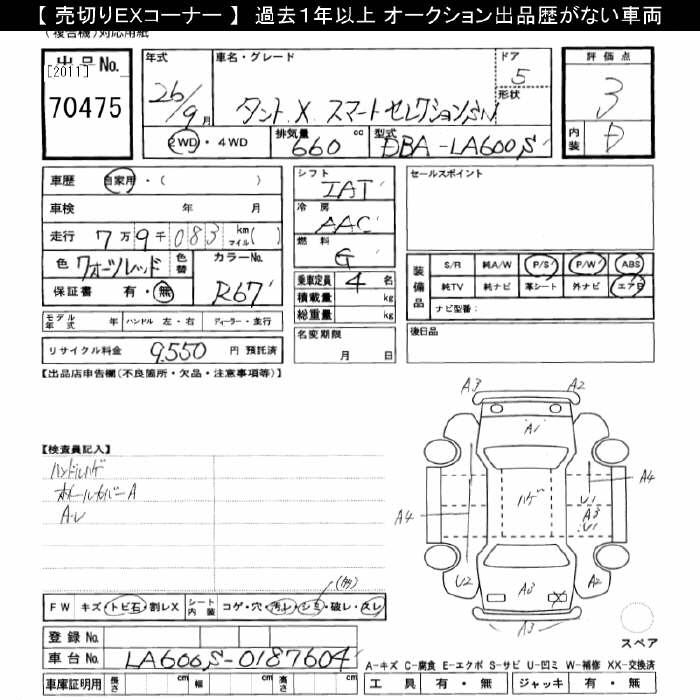 【 売切りEXコーナー 】 過去1年以上 オークション出品歴がない車両
(複合機)対応用紙
出品No.
[2011]
70475
年式
26/9月
車名・グレード
タント X スマートセレクションSN
ドア
5
形状
2WD・4WD
排気量 660 cc
型式 DBA-LA600S
評価点
3
内装 D
車歴 自家用・( )
車検 年 月
走行 7万9千083km マイル( )
色 フォーヅレッド 色替
カラーNo. R67
保証書 有・無
シフト IAT
冷房 AAC
燃料 G
乗車定員 4 名
積載量 kg
総重量 kg
セールスポイント
装備品
S/R 純A/W P/S P/W ABS
純TV 純ナビ 革シート 外ナビ エアB
ナビ型番:
モデル年式 年 ハンドル 左・右 ディーラー・並行
リサイクル料金 9,550 円 預託済
名変期限
月 日
後日品
【出品店申告欄(不良箇所・欠品・注意事項等)】
【検査員記入】
ハンドルハゲ
ホイールカバーA
A-レ
A3 A2
A1
ハゲ
A4
U1
A3
U1
A4
U2
A3
X
A2
A3
FW キズ・トビ石・割レX シート内装 コゲ・穴・汚レ・シミ・破レ・スレ
登録No.
車台No. LA600S-0187604
車庫証明用 長さ 幅 高さ
スペア
A-キズ C-腐食 E-エクボ S-サビ U-凹ミ W-補修 XX-交換済
工具 有・無 ジャッキ 有・無